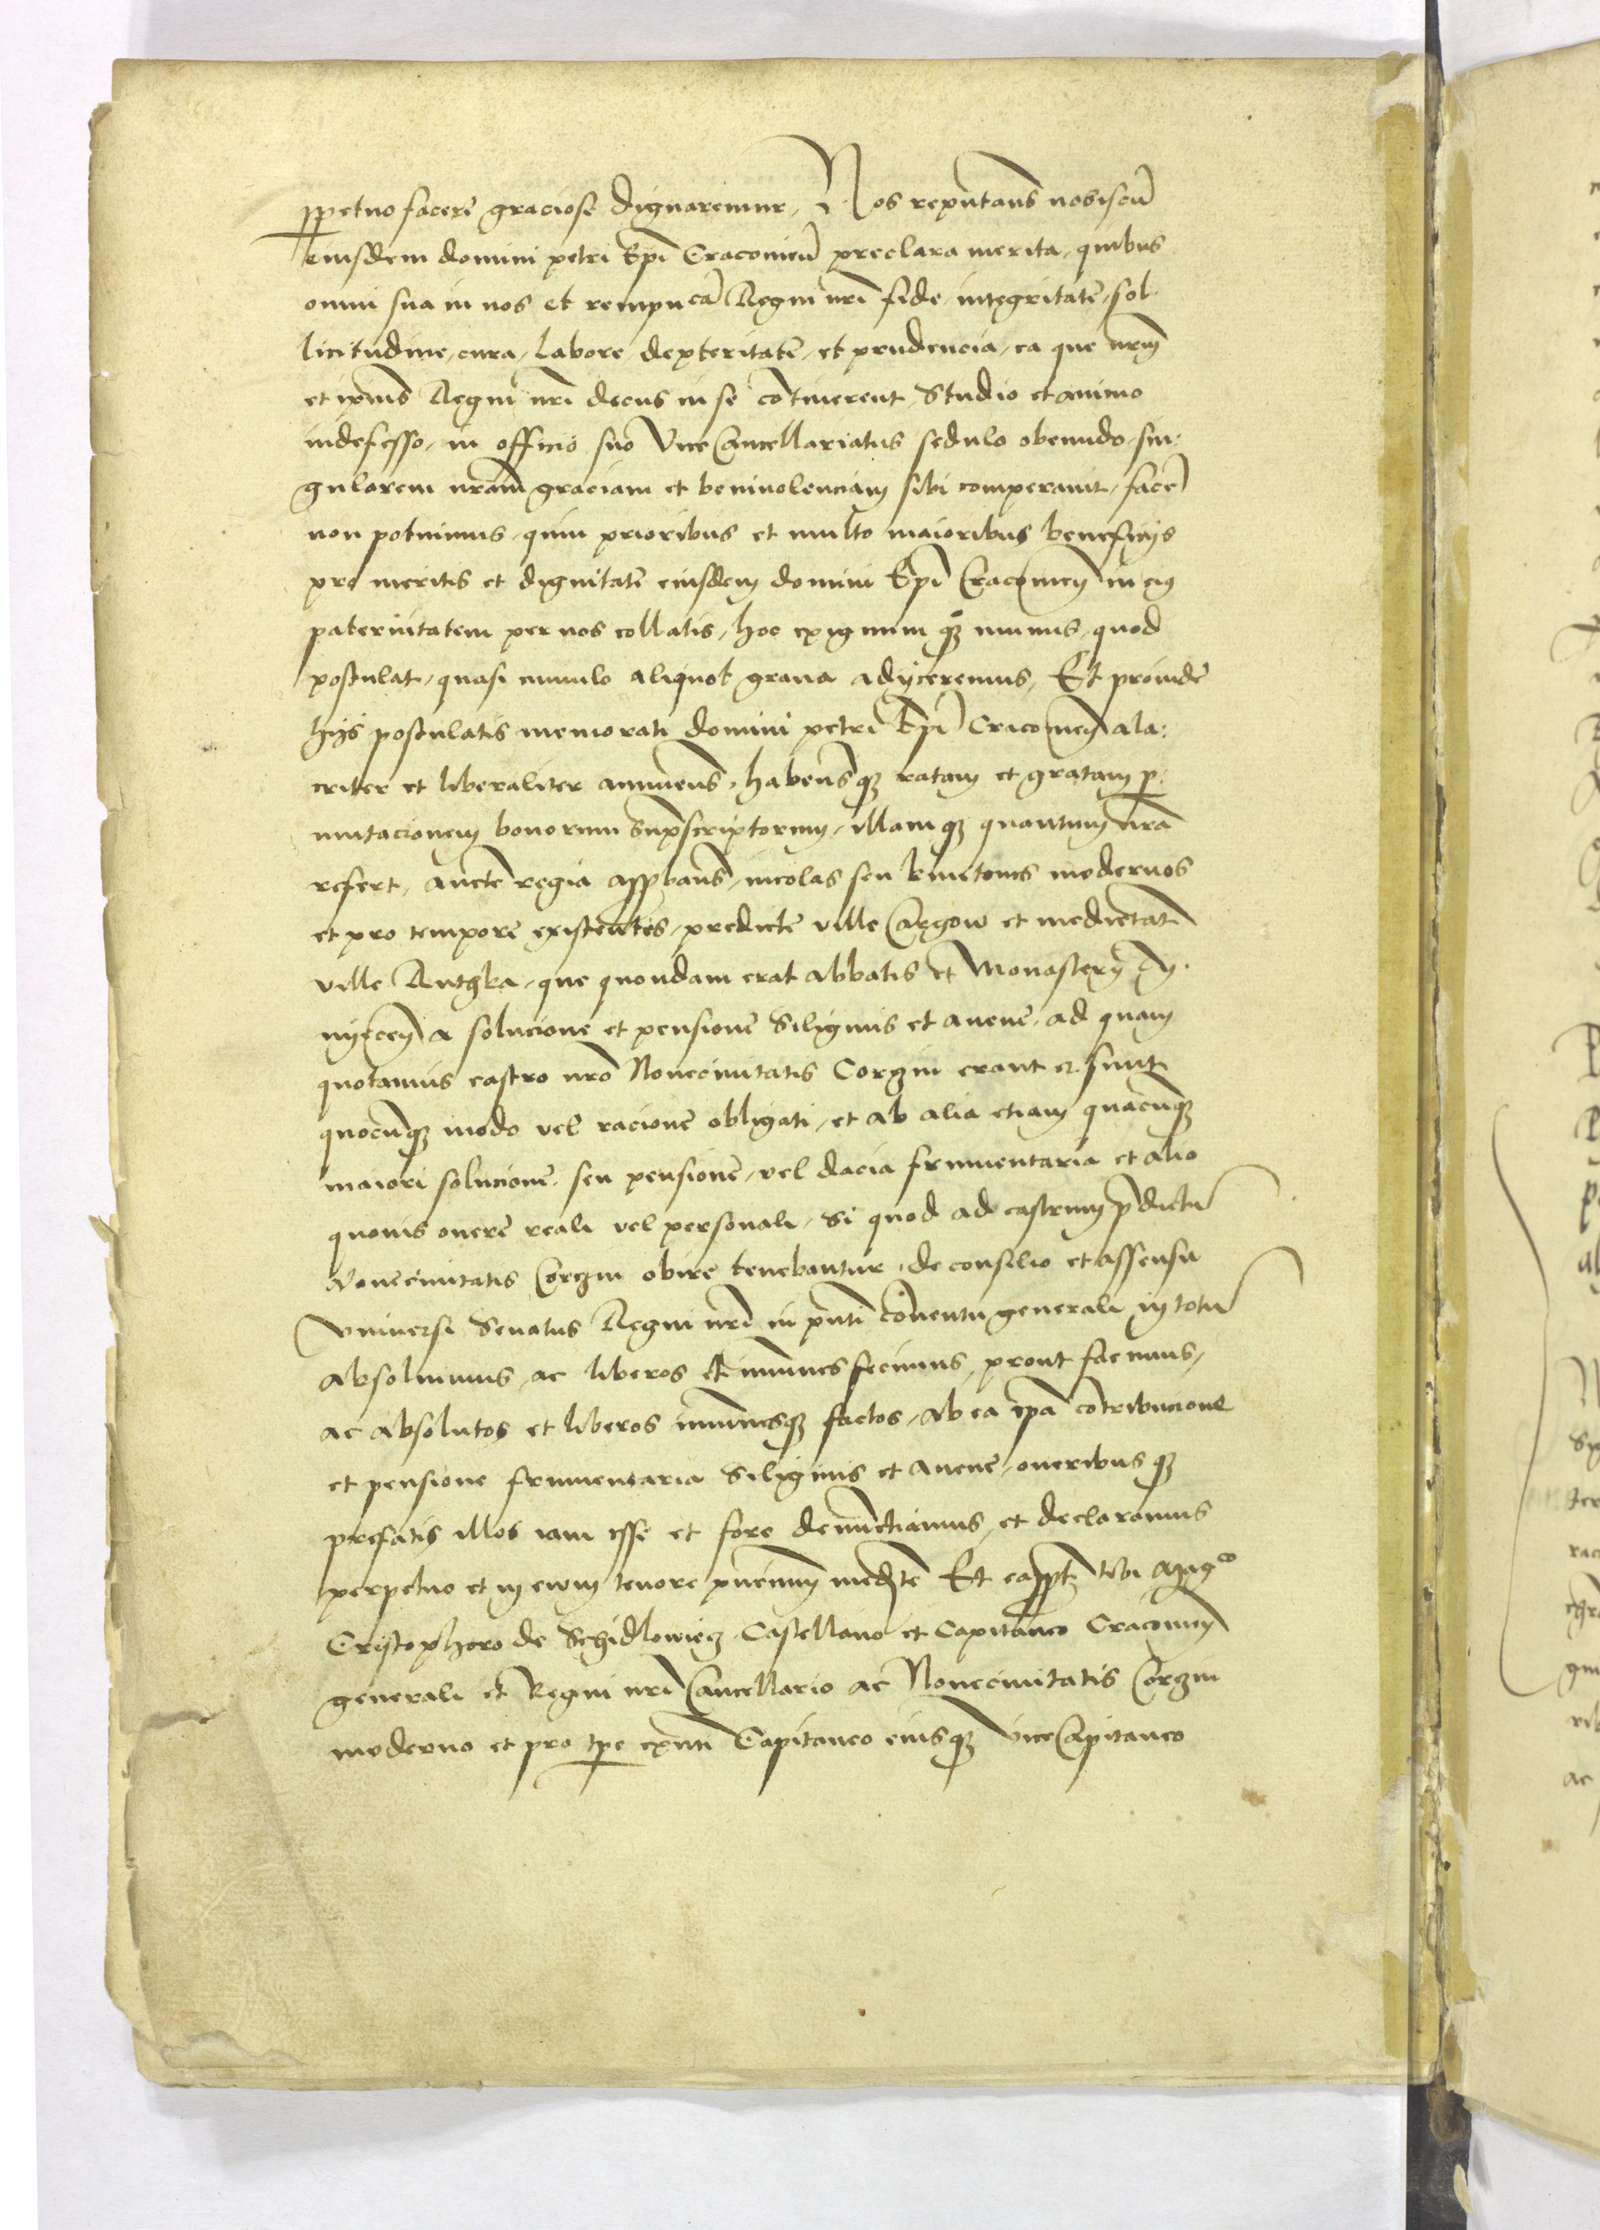 ꝑpetuo facere graciose dignaremur, Nos reputans nobiscū
eiusdem domini petri Epī Cracovieñ preclara merita, quibus
omni sua in nos et rempucā Regni nrī fide, integritate, sol
licitudine, cura, labore, dexteritate, et prudencia, ea que nrm̄
et ipius Regni nrī decus in se cōtinerent, Studio et animo
indefesso, in officio suo Vicecancellariatus sedulo obeundo, sin:
gularem nrām graciam et benivolenciam sibi comperavit, facē
non potuimus, quin prioribus et multo maioribus beneficijs
pro meritis et dignitate eiusdem domini Epī Cracovien̄ in eius
paternitatem per nos collatis, hoc exiguum qꝫ munus, quod
postulat, quasi cumulo aliquot grana adyceremus, Et proinde
hijs postulatis memorati domini petri Epī Cracovien̄ ala:
criter et liberaliter annuens, habensqꝫ ratam et gratam ꝑ:
mutacionem bonorum supscriptorum, illamqꝫ quantum nrā
refert, aucte regia approbans, incolas seu kmetones modernos
et pro tempore existentes, predicte ville Cargow et medietatē
ville Rutgka, que quondam erat abbatis et Monasterij Sy
nijeceñ a solucione et pensione Siliginis et avene, ad quam
quotannis castro nrō Novecivitatis Corgin erant et sunt
quocūqꝫ modo vel racione obligati, et ab alia etiam quacūqꝫ
maiori solucione, seu pensione, vel dacia frumentaria et alio
quovis onere reali vel personali, Si quod ad castrum p̄dictū
Novecivitatis Corgin obire tenebantur, de consilio et assensu
Vniversi Senatus Regni nrī in pn̄ti cōventu generali in totū
absolvimus, ac liberos et īmunes fecimus, prout facimus,
ac absolutos et liberos īmunesqꝫ factos, ab ea ipā cōtribucione
et pensione frumentaria Siliginis et avene, oneribusqꝫ
prefatis illos iam esse et fore denunctiamus, et declaramus
perpetuo et in evum tenore pn̄cium medīte Et eapptr tibi Mgco
Cristophoro de Schidlowiecz Castellano et Capitaneo Cracovien̄
generali et Regni nrī Cancellario ac Novecivitatis Corgin
moderno et pro tpe exn̄ti Capitaneo eiusqꝫ viceCapitaneo